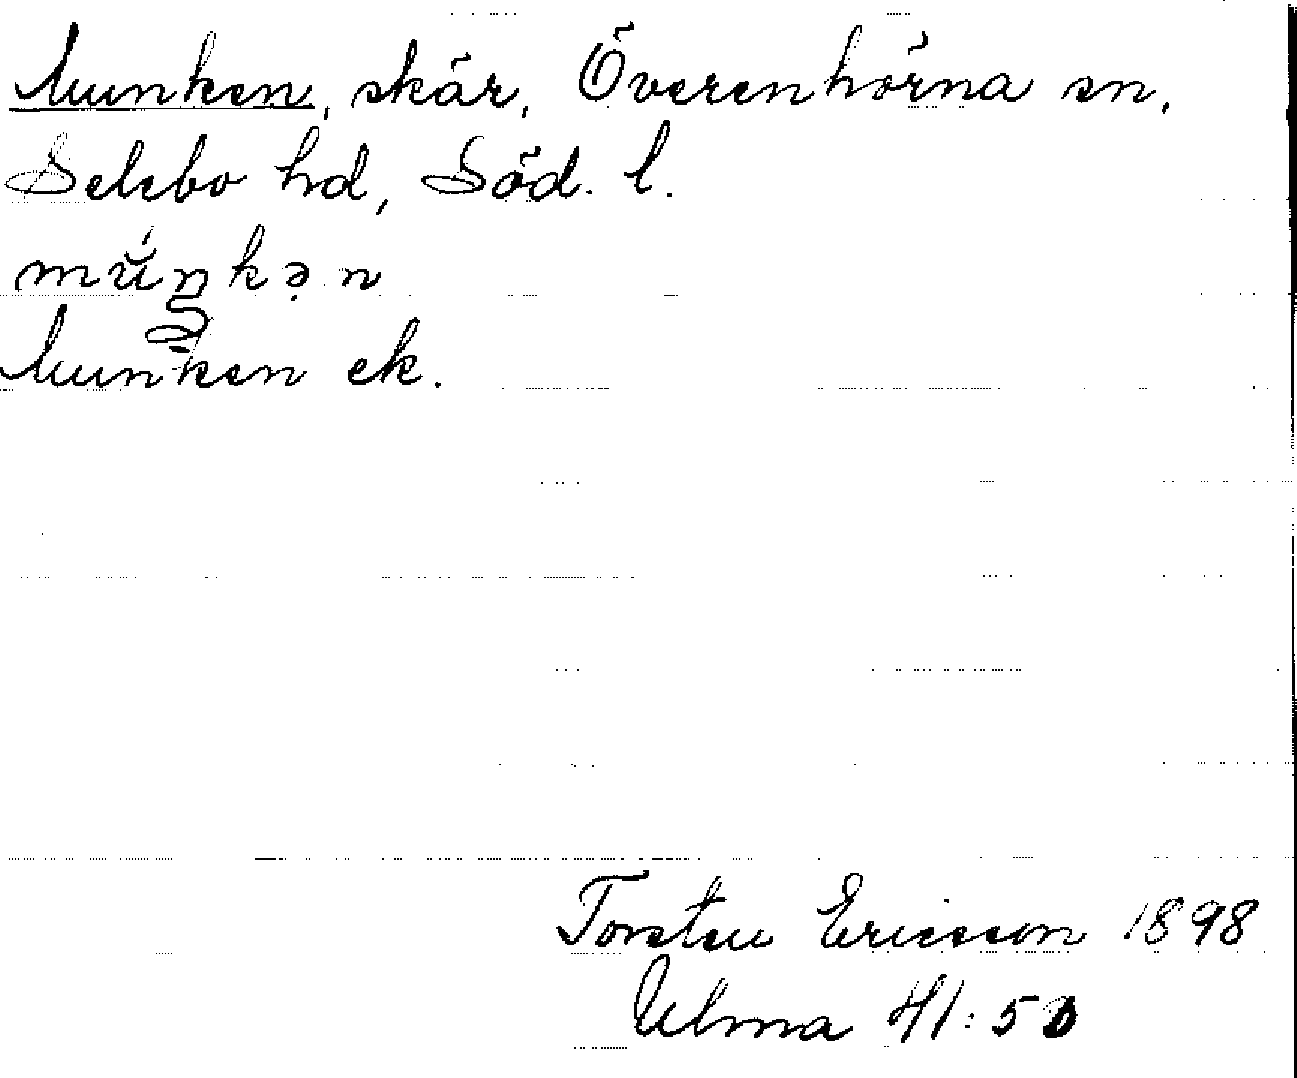 Munken, skär, Överenhörna sn,
Selebo hd, Söd. l.
múŋkə̣n
Munken ek.
Torsten Ericsson 1898
Ulma 41:50